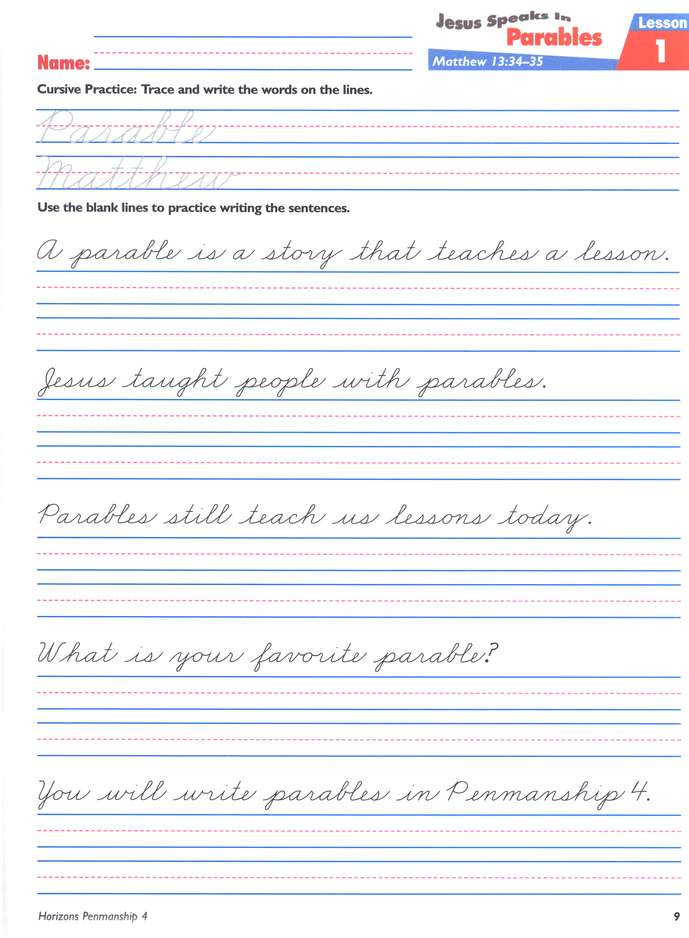 Jesus Speaks In
Parables
Lesson
1
Name:
Matthew 13:34–35
Cursive Practice: Trace and write the words on the lines.
Parable
Matthew
Use the blank lines to practice writing the sentences.
A parable is a story that teaches a lesson.
Jesus taught people with parables.
Parables still teach us lessons today.
What is your favorite parable?
You will write parables in Penmanship 4.
Horizons Penmanship 4
9